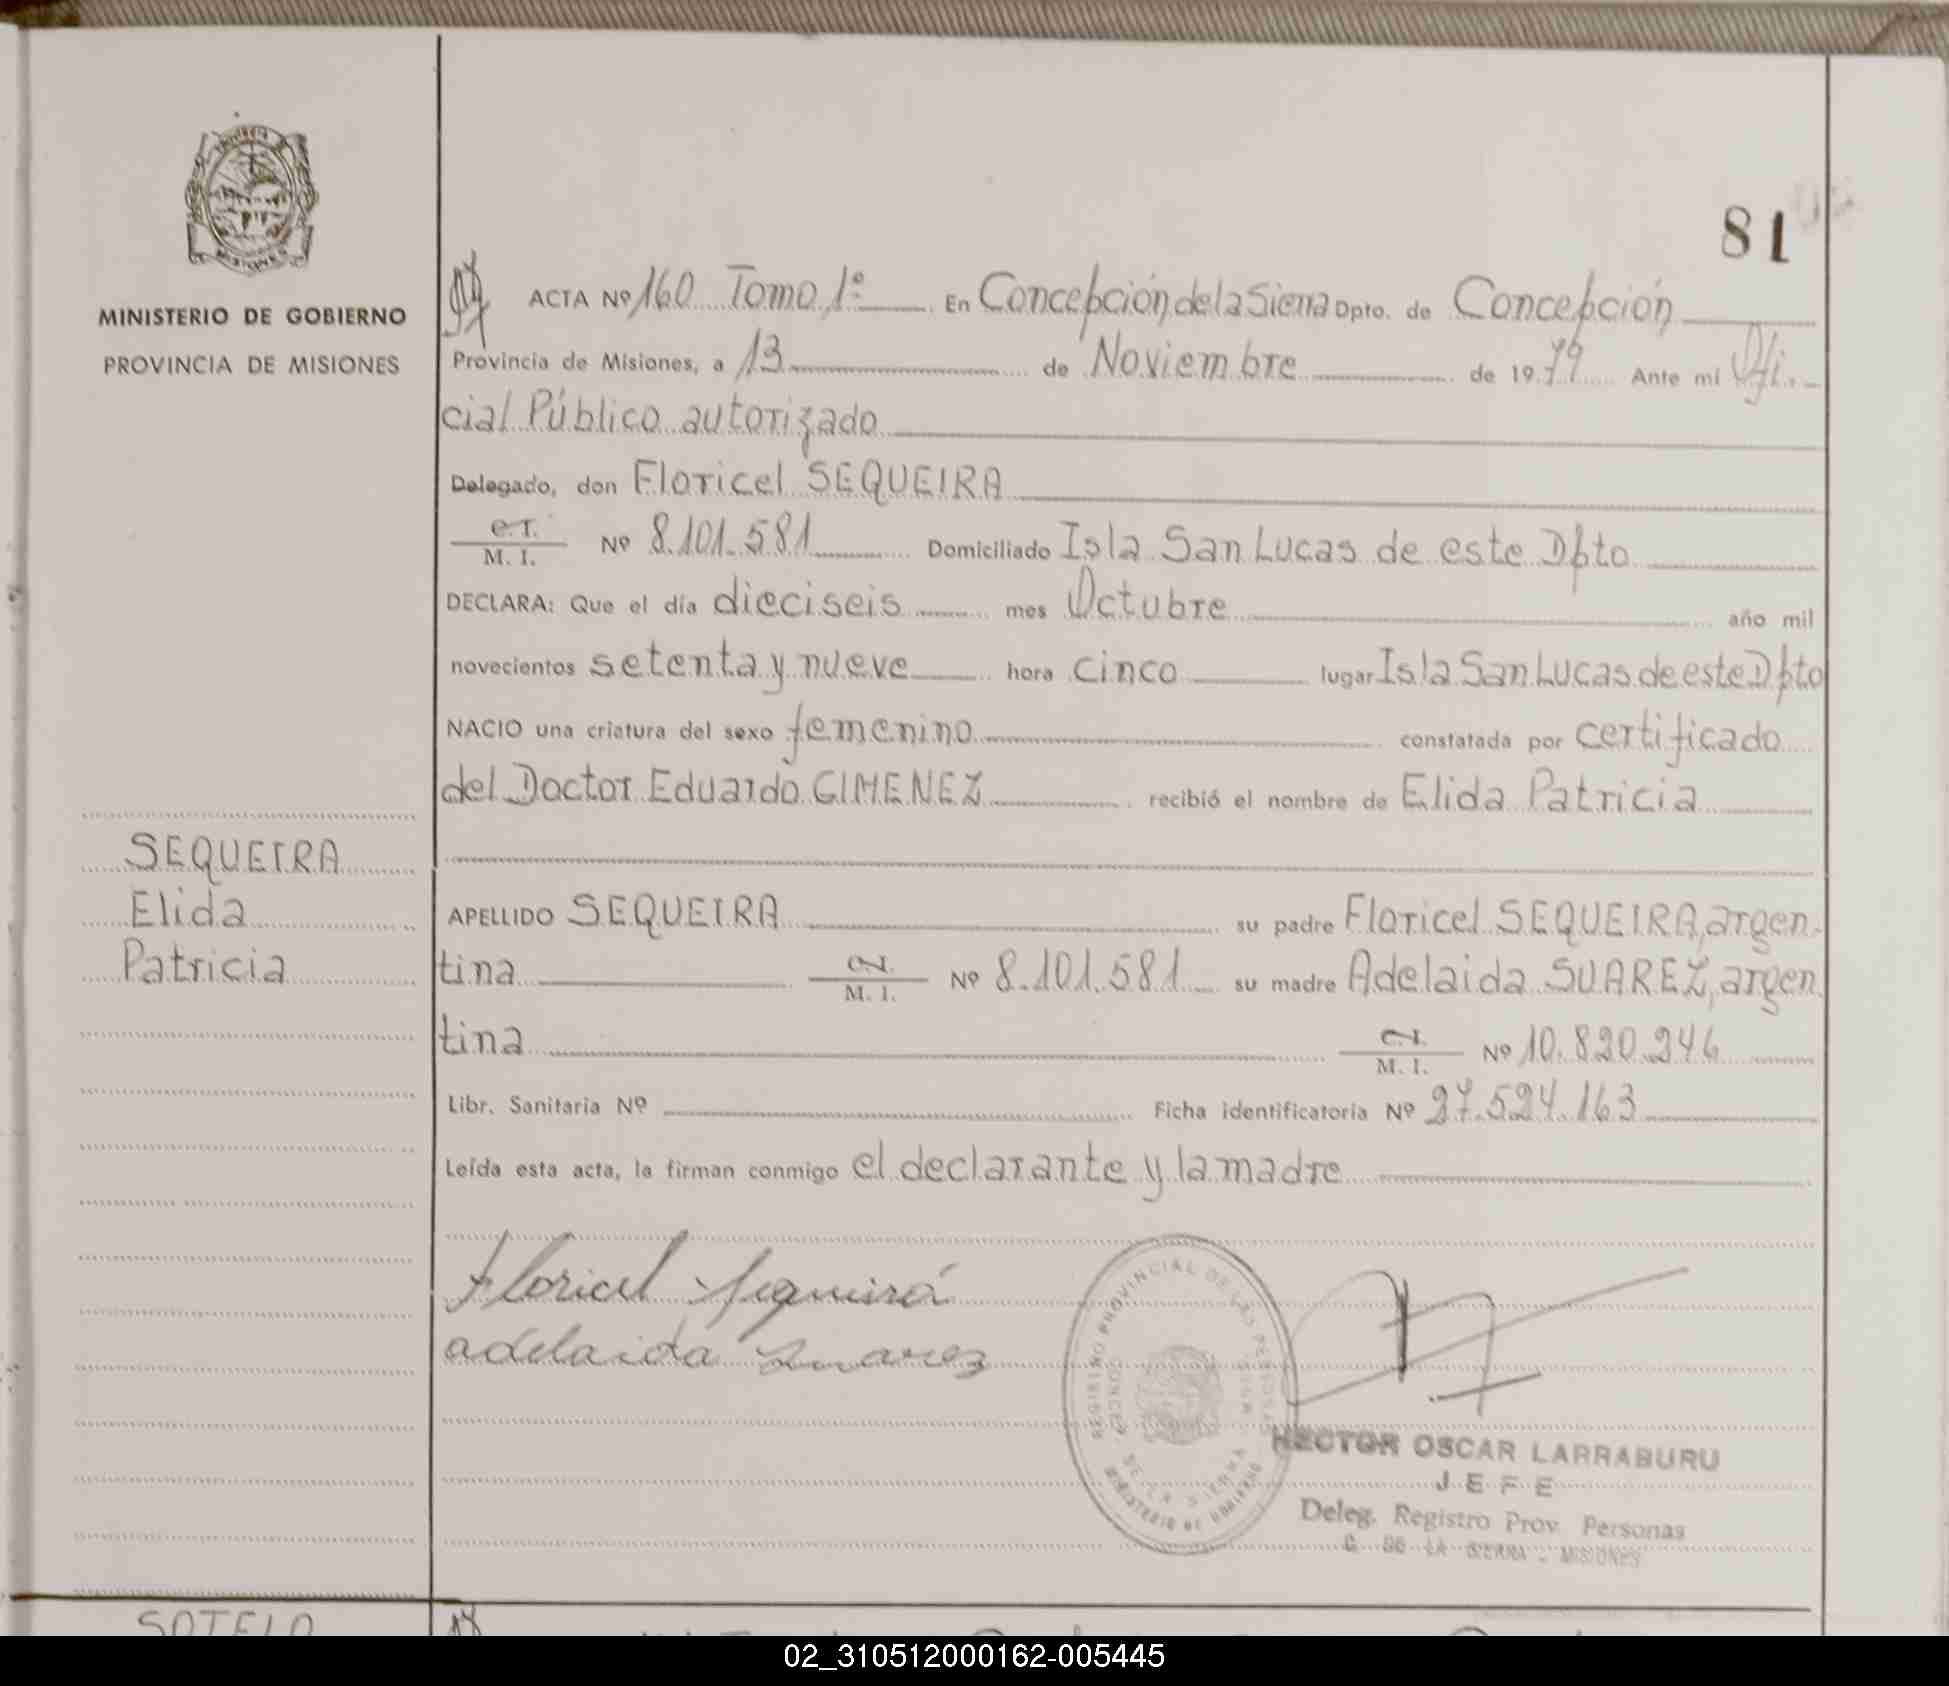 81
MINISTERIO DE GOBIERNO
PROVINCIA DE MISIONES
ACTA Nº 160 Tomo 1º En Concepción de la Sierra Dpto. de Concepción
Provincia de Misiones, a 13 de Noviembre de 1979 Ante mi Ofi-
cial Público autorizado
Delegado, don Floricel SEQUEIRA
M. I. Nº 8.101.581 Domiciliado Isla San Lucas de este Dpto
DECLARA: Que el día dieciseis mes Octubre año mil
novecientos setenta y nueve hora cinco lugar Isla San Lucas de este Dpto
NACIO una criatura del sexo femenino constatada por certificado
del Doctor Eduardo GIMENEZ recibió el nombre de Elida Patricia
SEQUEIRA
Elida
Patricia
APELLIDO SEQUEIRA su padre Floricel SEQUEIRA, argen-
tina M. I. Nº 8.101.581 su madre Adelaida SUAREZ, argen
tina M. I. Nº 10.820.246
Libr. Sanitaria Nº Ficha identificatoria Nº 27.524.163
Leída esta acta, la firman conmigo el declarante y la madre
Floricel Sequeira
adelaida Suarez
REGISTRO PROVINCIAL DE LAS PERSONAS
MINISTERIO DE GOBIERNO
HECTOR OSCAR LARRABURU
JEFE
Deleg. Registro Prov. Personas
C. DE LA SIERRA - MISIONES
SOTELO
02_310512000162-005445